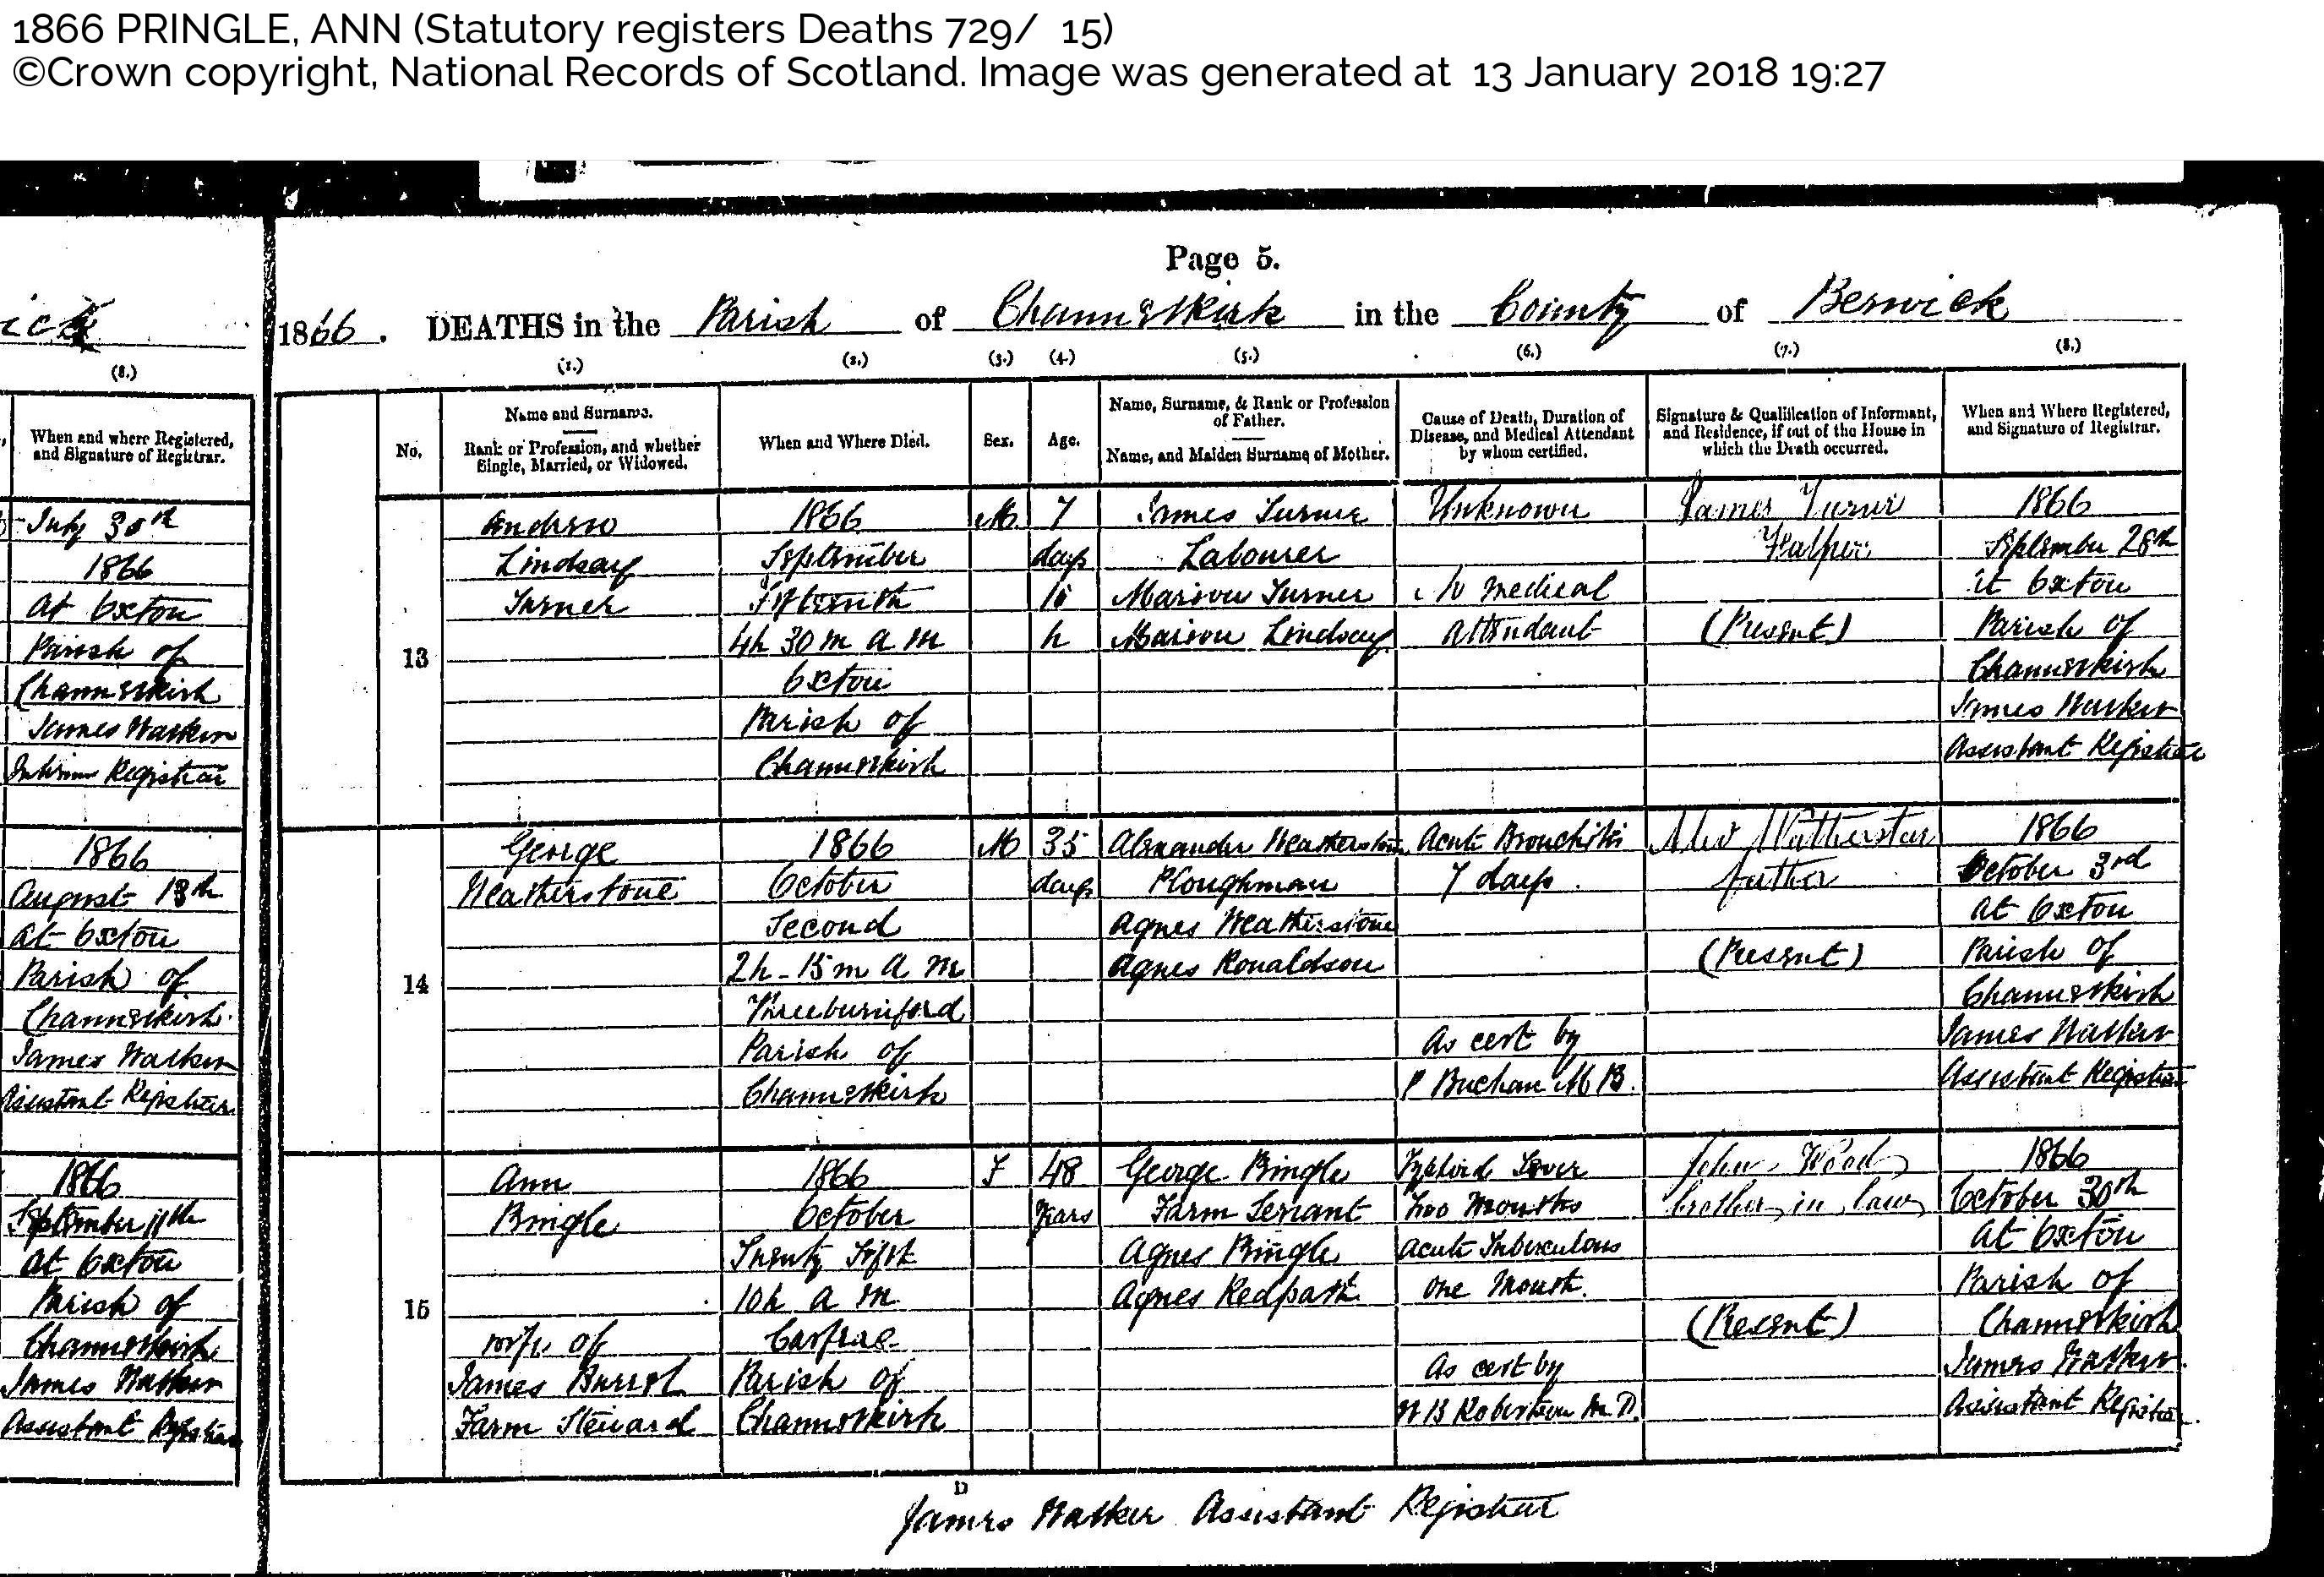 1866 PRINGLE, ANN (Statutory registers Deaths 729/ 15)
©Crown copyright, National Records of Scotland. Image was generated at 13 January 2018 19:27
Page 5.
1866. DEATHS in the Parish of Channelkirk in the County of Berwick
(8.)
When and where Registered,
and Signature of Registrar.
July 30th
1866
at Oxton
Parish of
Channelkirk
James Walker
Interim Registrar
1866
August 13th
at Oxton
Parish of
Channelkirk
James Walker
Assistant Registrar
1866
September 11th
at Oxton
Parish of
Channelkirk
James Walker
Assistant Registrar
(1.) (2.) (3.) (4.) (5.) (6.) (7.) (8.)
No.
Name and Surname.
Rank or Profession, and whether
Single, Married, or Widowed.
When and Where Died.
Sex.
Age.
Name, Surname, & Rank or Profession
of Father.
Name, and Maiden Surname of Mother.
Cause of Death, Duration of
Disease, and Medical Attendant
by whom certified.
Signature & Qualification of Informant,
and Residence, if out of the House in
which the Death occurred.
When and Where Registered,
and Signature of Registrar.
13
Andrew
Lindsay
Turner
1866
September
4h 30 m a m
Oxton
Parish of
Channelkirk
M
7
days
h
James Turner
Labourer
Marion Turner
Marion Lindsay
Unknown
No medical
attendant
James Turner
Father
(Present)
1866
September 28th
at Oxton
Parish of
Channelkirk
James Walker
Assistant Registrar
14
George
Weatherstone
1866
October
Second
2h - 15 m a m
Threeburnford
Parish of
Channelkirk
M
35
days
Alexander Weatherstone
Ploughman
Agnes Weatherstone
Agnes Ronaldson
Acute Bronchitis
7 days.
As cert by
P Buchan M B.
father
(Present)
1866
October 3rd
at Oxton
Parish of
Channelkirk
James Walker
Assistant Registrar
15
Ann
Pringle
wife of
James Burrel
Farm Steward
1866
October
Twenty Fifth
10h a m
Carfrae
Parish of
Channelkirk
F
48
Years
George Pringle
Farm Servant
Agnes Pringle
Agnes Redpath
Typhoid Fever
two Months
Acute Tuberculous
one Month.
As cert by
W B Robertson M. D.
John Wood
brother in law
(Present)
1866
October 30th
at Oxton
Parish of
Channelkirk
James Walker
Assistant Registrar
D
James Walker Assistant Registrar